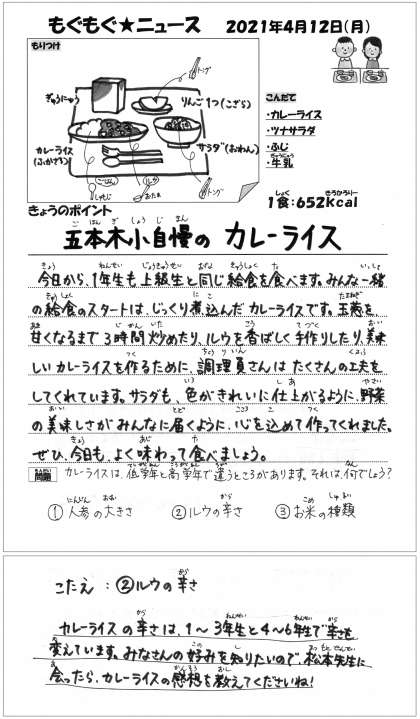 もぐもぐ★ニュース 2021年4月12日(月)
もりつけ
トング
ぎゅうにゅう
りんご1つ(こざら)
カレーライス
(ふかざら)
サラダ(おわん)
ごはん
ルウ
しゃもじ
おたま
トング
こんだて
・カレーライス
・ツナサラダ
・ふじ
・牛乳
1食:652kcal
きょうのポイント
五本木小自慢の カレーライス
今日から、1年生も上級生と同じ給食を食べます。みんな一緒
の給食のスタートは、じっくり煮込んだカレーライスです。玉葱を
甘くなるまで3時間炒めたり、ルウを香ばしく手作りしたり、美味
しいカレーライスを作るために、調理員さんはたくさんの工夫を
してくれています。サラダも、色がきれいに仕上がるように、野菜
の美味しさがみんなに届くように、心を込めて作ってくれました。
ぜひ、今日も、よく味わって食べましょう。
問題 カレーライスは、低学年と高学年で違うところがあります。それは、何でしょう?
①人参の大きさ ②ルウの辛さ ③お米の種類
こたえ:②ルウの辛さ
カレーライスの辛さは、1〜3年生と4〜6年生で辛さを
変えています。みなさんの好みを知りたいので、松本先生に
会ったら、カレーライスの感想を教えてくださいね!